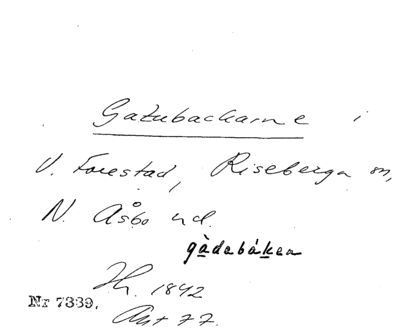 Gatubackarne i
V. Forestad, Riseberga sn,
N. Åsbo hd.
gàdabákan
Jh. 1842
Nr 7339.
Akt 77.